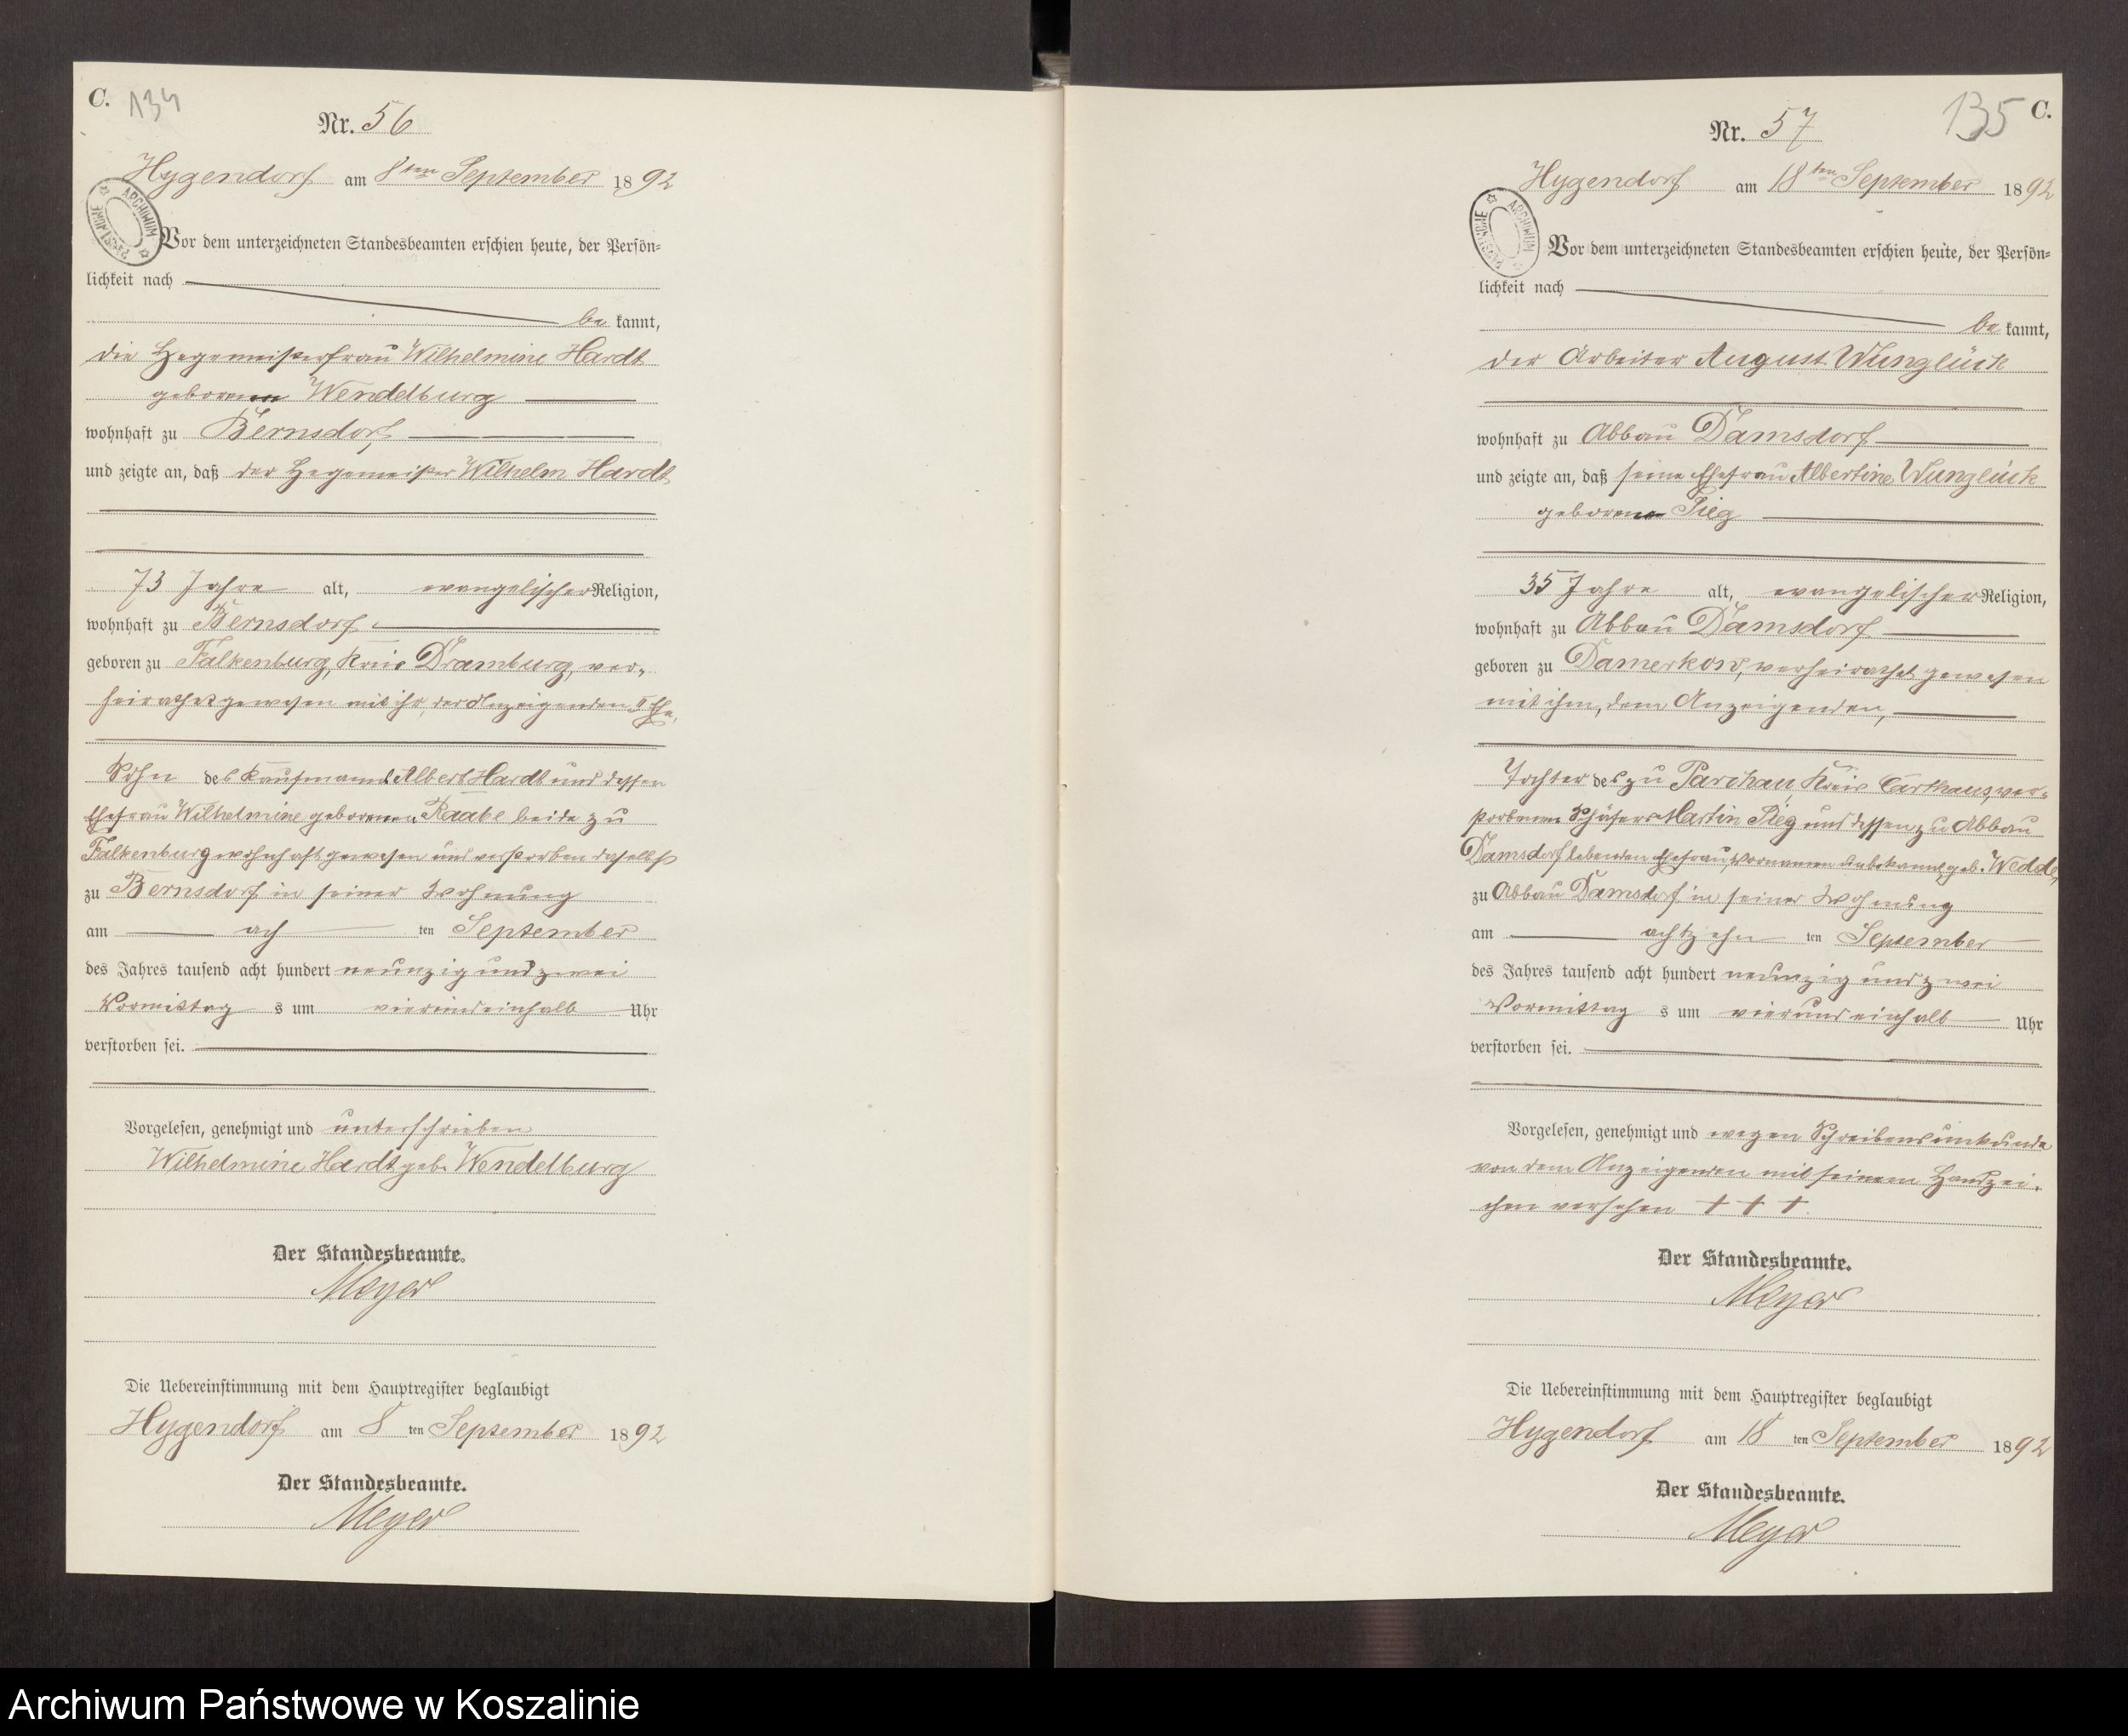 C. 134
Nr. 56
Hygendorf am 8ten September 1892
ARCHIWUM PAŃSTWOWE
Vor dem unterzeichneten Standesbeamten erschien heute, der Persön-
lichkeit nach
be kannt,
die Hegemeisterfrau Wilhelmine Hardt
geborene Wendelburg
wohnhaft zu Bernsdorf
und zeigte an, daß der Hegemeister Wilhelm Hardt
73 Jahre alt, evangelischer Religion,
wohnhaft zu Bernsdorf
geboren zu Falkenburg, Kreis Dramburg, ver-
heirathet gewesen mit ihr, der Anzeigenden, II Ehe,
Sohn des Kaufmanns Albert Hardt und dessen
Ehefrau Wilhelmine geborenen Raabe beide zu
Falkenburg wohnhaft gewesen und verstorben daselbst
zu Bernsdorf in seiner Wohnung
am ach ten September
des Jahres tausend acht hundert neunzig und zwei
Vormittag s um vierundeinhalb Uhr
verstorben sei.
Vorgelesen, genehmigt und unterschrieben
Wilhelmine Hardt geb. Wendelburg
Der Standesbeamte.
Meyer
Die Uebereinstimmung mit dem Hauptregister beglaubigt
Hygendorf am 8 ten September 1892
Der Standesbeamte.
Meyer
135 C.
Nr. 57
Hygendorf am 18ten September 1892
ARCHIWUM PAŃSTWOWE
Vor dem unterzeichneten Standesbeamten erschien heute, der Persön-
lichkeit nach
be kannt,
der Arbeiter August Wunglück
wohnhaft zu Abbau Damsdorf
und zeigte an, daß seine Ehefrau Albertine Wunglück
geborene Sieg
35 Jahre alt, evangelischer Religion,
wohnhaft zu Abbau Damsdorf
geboren zu Damerkow, verheirathet gewesen
mit ihm, dem Anzeigenden,
Tochter des zu Parchau, Kreis Carthaus, ver-
storbenen Schäfers Martin Sieg und dessen zu Abbau
Damsdorf lebenden Ehefrau, Vornamen unbekannt, geb. Wedde,
zu Abbau Damsdorf in seiner Wohnung
am achtzehn ten September
des Jahres tausend acht hundert neunzig und zwei
Vormittag s um vierundeinhalb Uhr
verstorben sei.
Vorgelesen, genehmigt und wegen Schreibensunkunde
von dem Anzeigenden mit seinem Handzei-
chen versehen + + +
Der Standesbeamte.
Meyer
Die Uebereinstimmung mit dem Hauptregister beglaubigt
Hygendorf am 18 ten September 1892
Der Standesbeamte.
Meyer
Archiwum Państwowe w Koszalinie